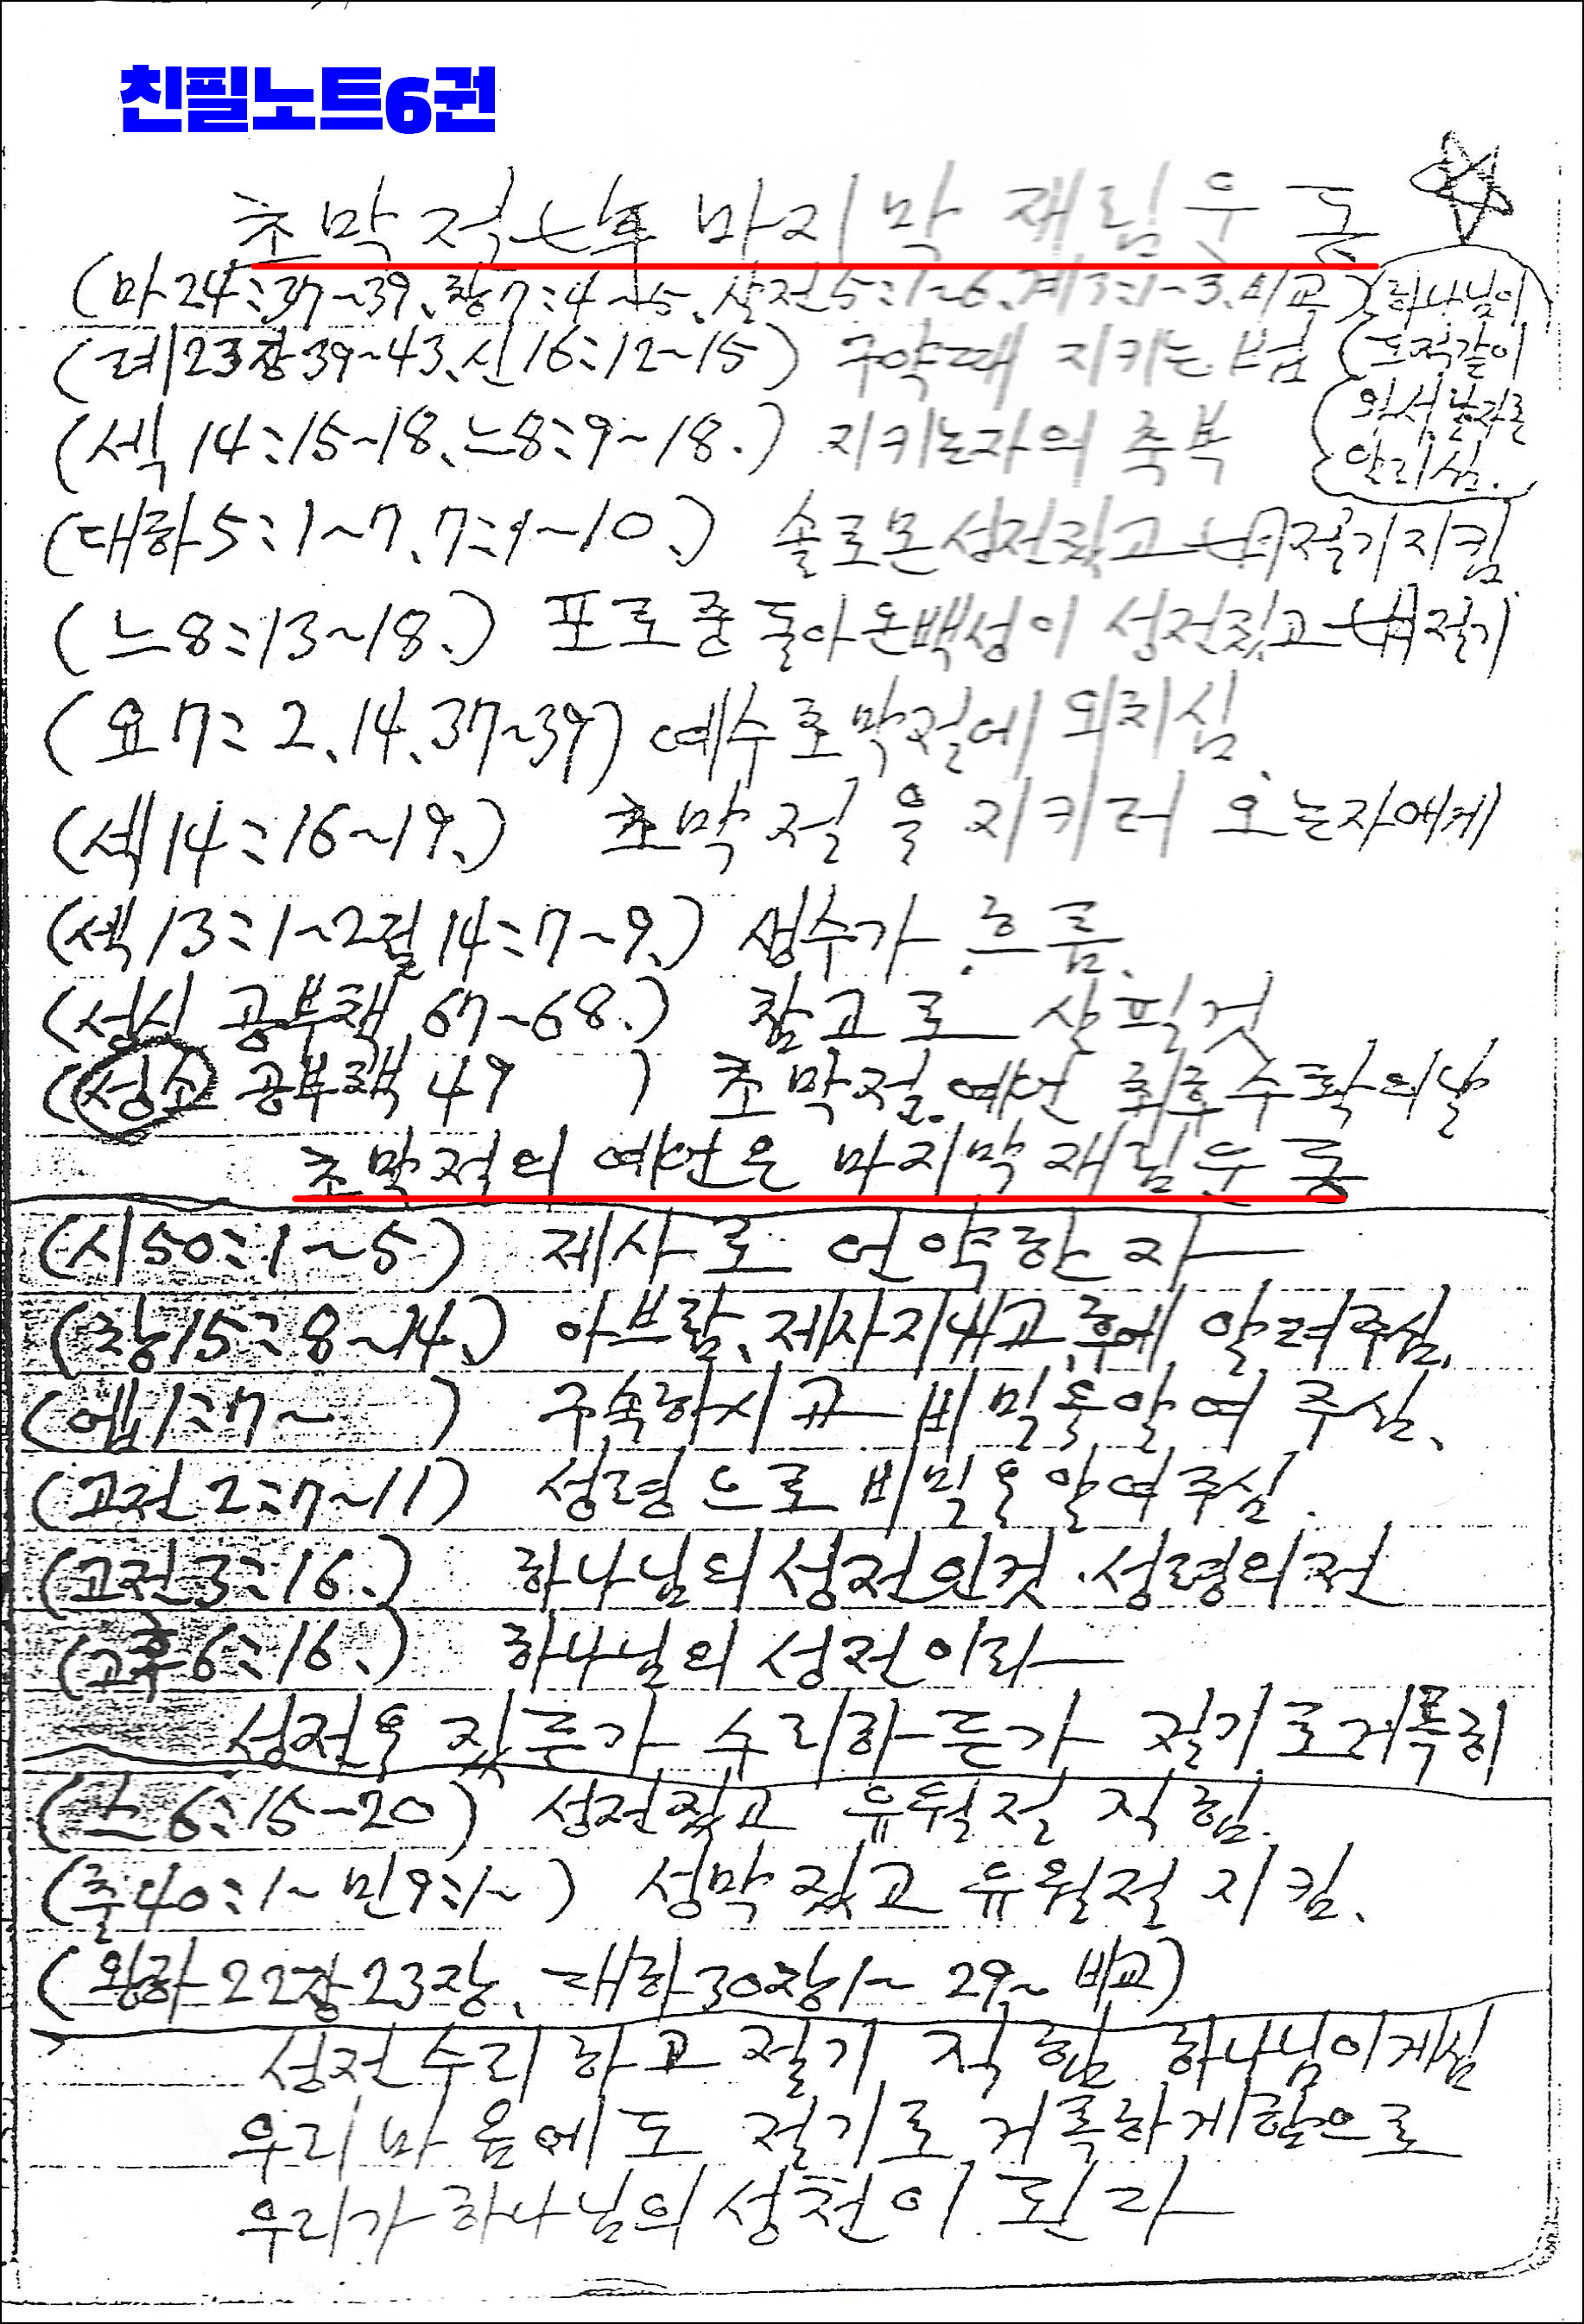 친필노트6권
초막절 七年 마지막 재림운동
(마24:37~39, 창7:4~5, 살전5:1~6, 계3:1~3, 비교)
(하나님이
도적같이
와서 날자를
알리심.)
(레23장39~43, 신16:12~15) 구약때 지키는 법
(섹14:15~18, 느8:9~18.) 지키는자의 축복
(대하5:1~7, 7:1~10.) 솔로몬 성전짓고 七月절기지킴
(느8:13~18.) 포로중 돌아온백성이 성전짓고 七月절기
(요7:2, 14, 37~39) 예수 초막절에 외치심
(섹14:16~19.) 초막절을 지키러 오는자에게
(섹13:1~2절 14:7~9.) 생수가 흐름.
(성신 공부책 67~68.) 참고로 살필것
(성소 공부책 49 ) 초막절 예언 최후 수확의날
초막절의 예언은 마지막 재림운동
(시50:1~5) 제사로 언약한 자
(창15:8~14.) 아브람, 제사지내고, 후에 알려주심.
(엡1:7~ ) 구속하시고 비밀을 알여 주심.
(고전2:7~11) 성령으로 비밀을 알여주심.
(고전3:16.) 하나님의 성전인것. 성령의 전
(고후6:16.) 하나님의 성전이라
성전을 짓든가 수리하든가 절기로 거룩히
(스6:15-20) 성전짓고 유월절 직힘.
(출40:1~ 민9:1~ ) 성막 짓고 유월절 지킴.
(왕하22장23장, 대하30장1~ 29~ 비교)
성전수리하고 절기 직힘 하나님이계심
우리 마음에도 절기로 거룩하게함으로
우리가 하나님의 성전이 된다